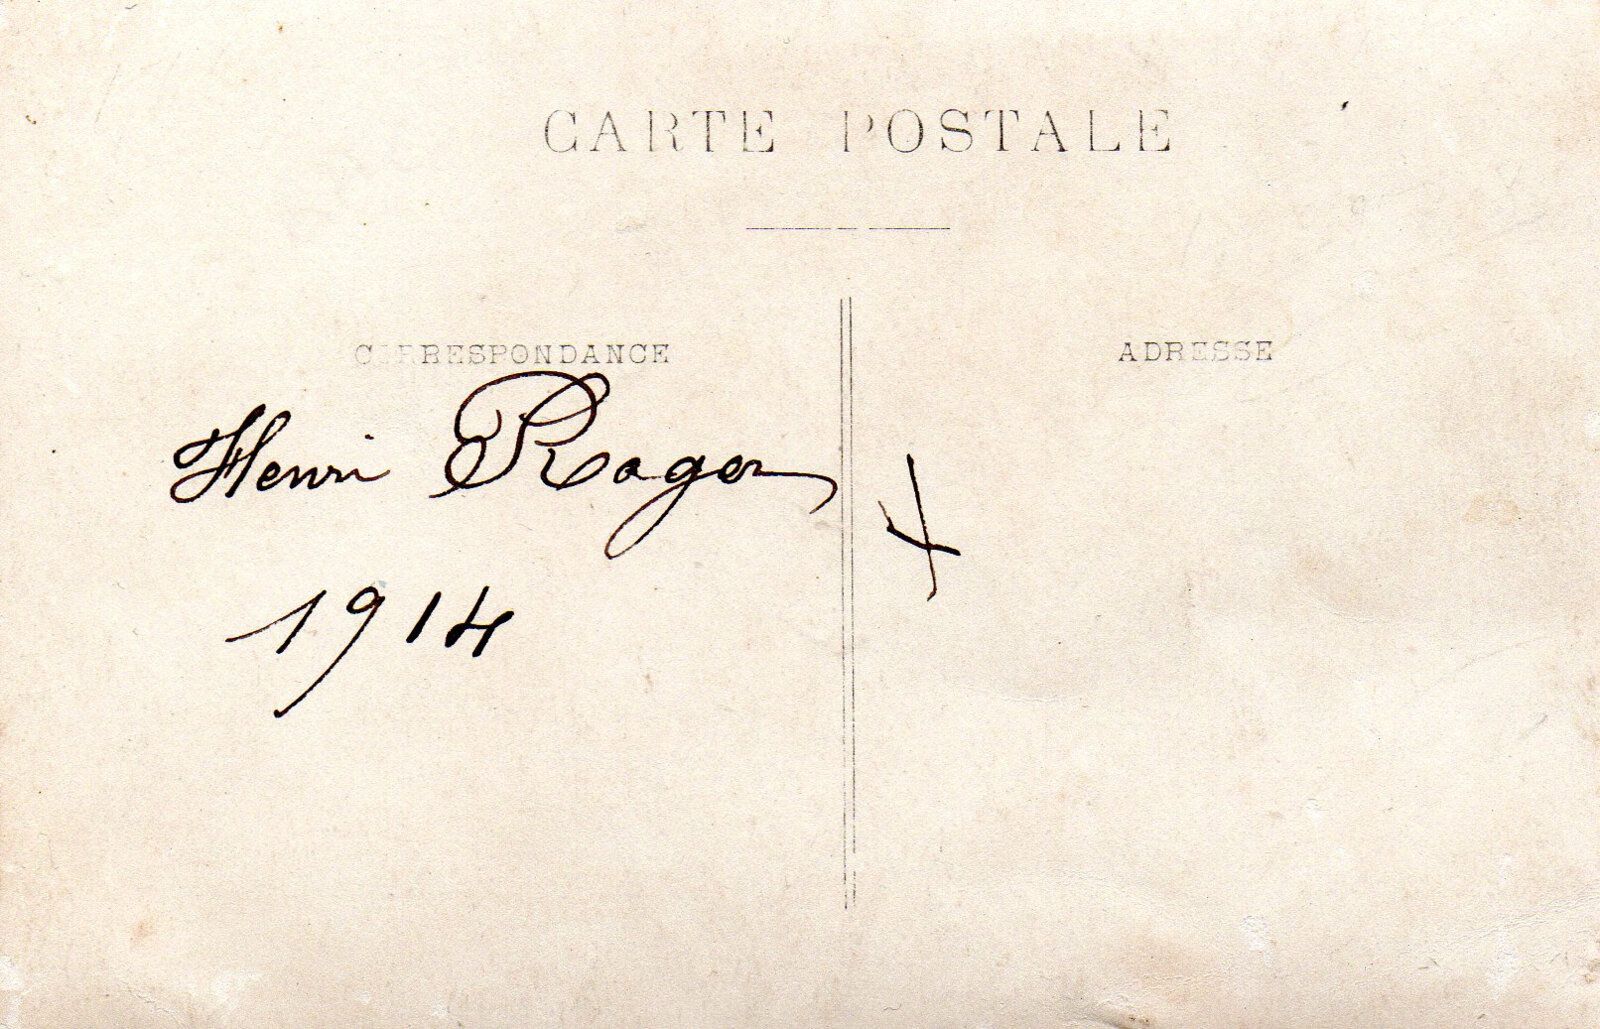 CARTE POSTALE
CORRESPONDANCE
ADRESSE
Henri Ragon
1914